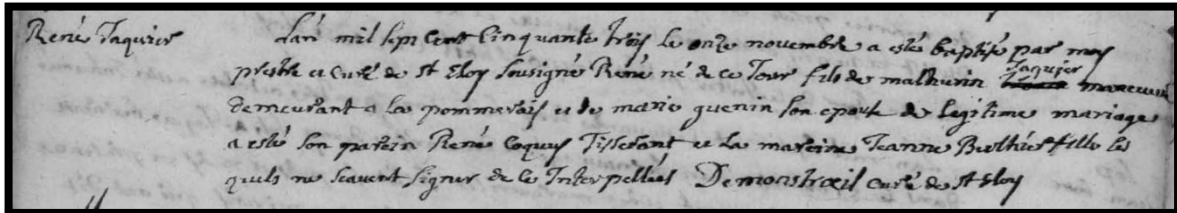 René Jaquier Lan mil sept Cent Cinquante trois le onze novembre a esté baptisé par moy
prestre et Curé de St Eloy Sousigné René né de ce Jour fils de mathurin Jaquier manœuvre
demeurant a la pommerais et de marie quenin son epouse de legitime mariage
a esté son parein René Coquis Tisserant et la mareine Jeanne Berthier fille les
quels ne scavent signer de ce Interpellés Demonstrœil Curé de St Eloy